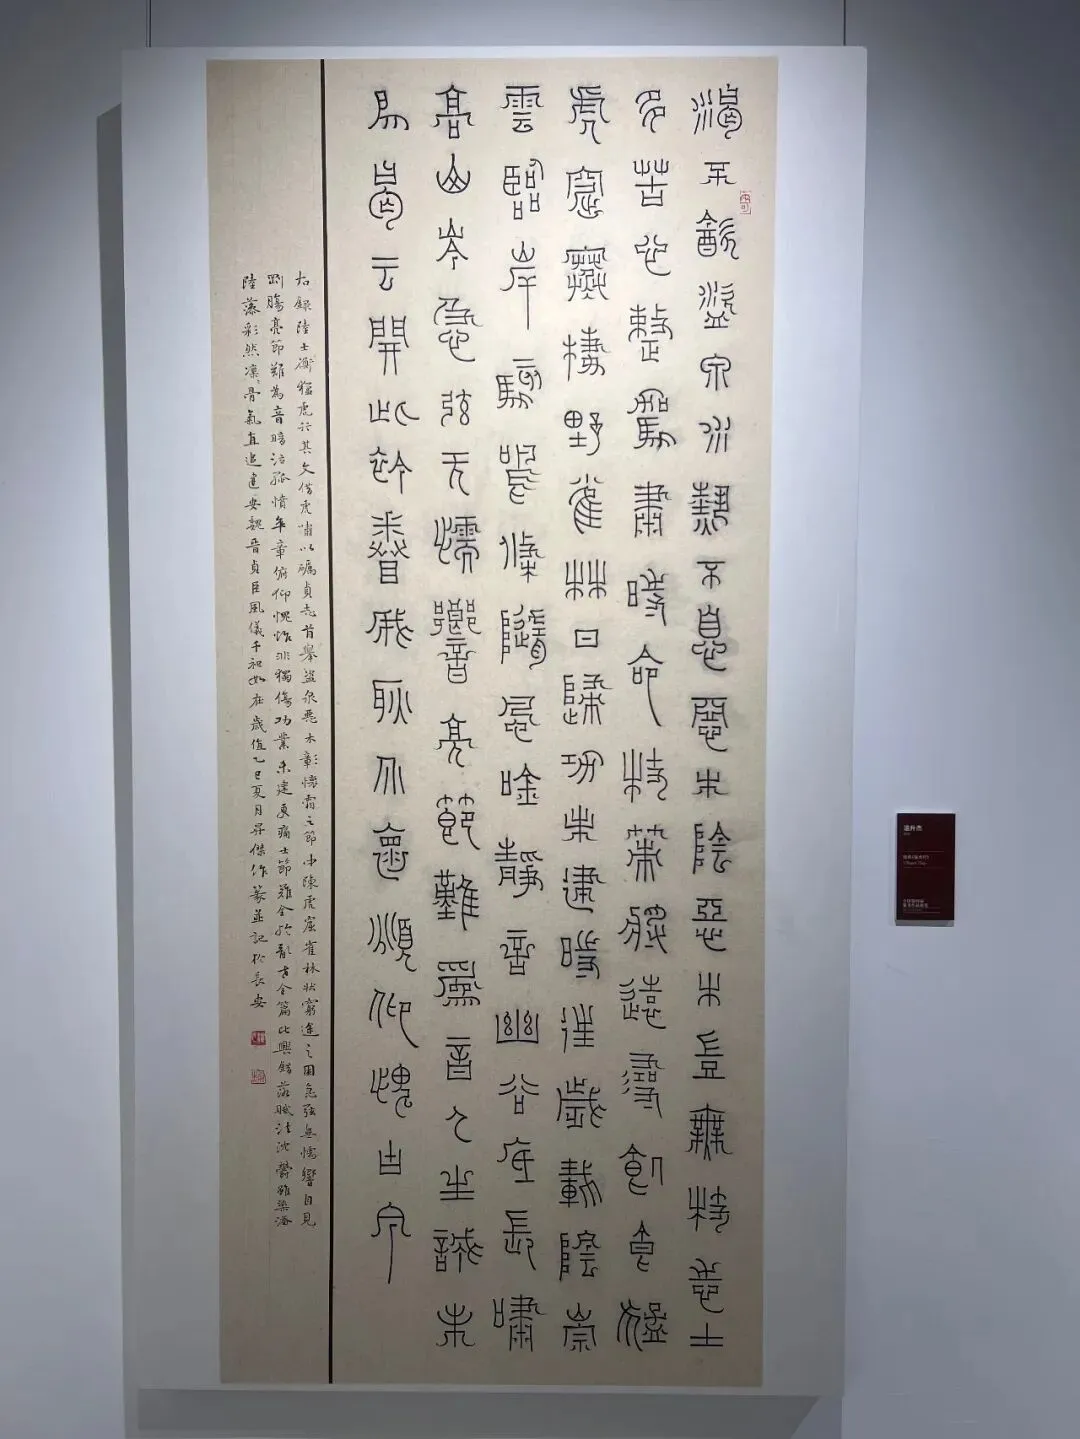 渴不飲盜泉水熱不息惡木陰惡木豈無枝志士
多苦心整駕肅時命杖策將遠尋飢食猛
虎窟寒棲野雀林日歸功未建時往歲載陰崇
雲臨岸駭鳴條隨風吟靜言幽谷底長嘯
高山岑急弦无懦響亮節難為音人生誠未
易曷云開此衿眷我耿介懷俯仰愧古今
右錄陸士衡猛虎行其文借虎嘯以礪貞志首舉盜泉惡木彰懷霜之節中陳虎窟雀林狀窮途之困急弦無懦響自見
剛腸亮節難為音暗孤憤卒章俯仰愧怍非獨傷功業未建更痛士節難全於全篇比興錯落賦法沈鬱雖染潘
陸藻彩然凜凜骨氣直追建安魏晉貞臣風儀千祀如在歲值乙巳夏月昇傑作篆並記於長安